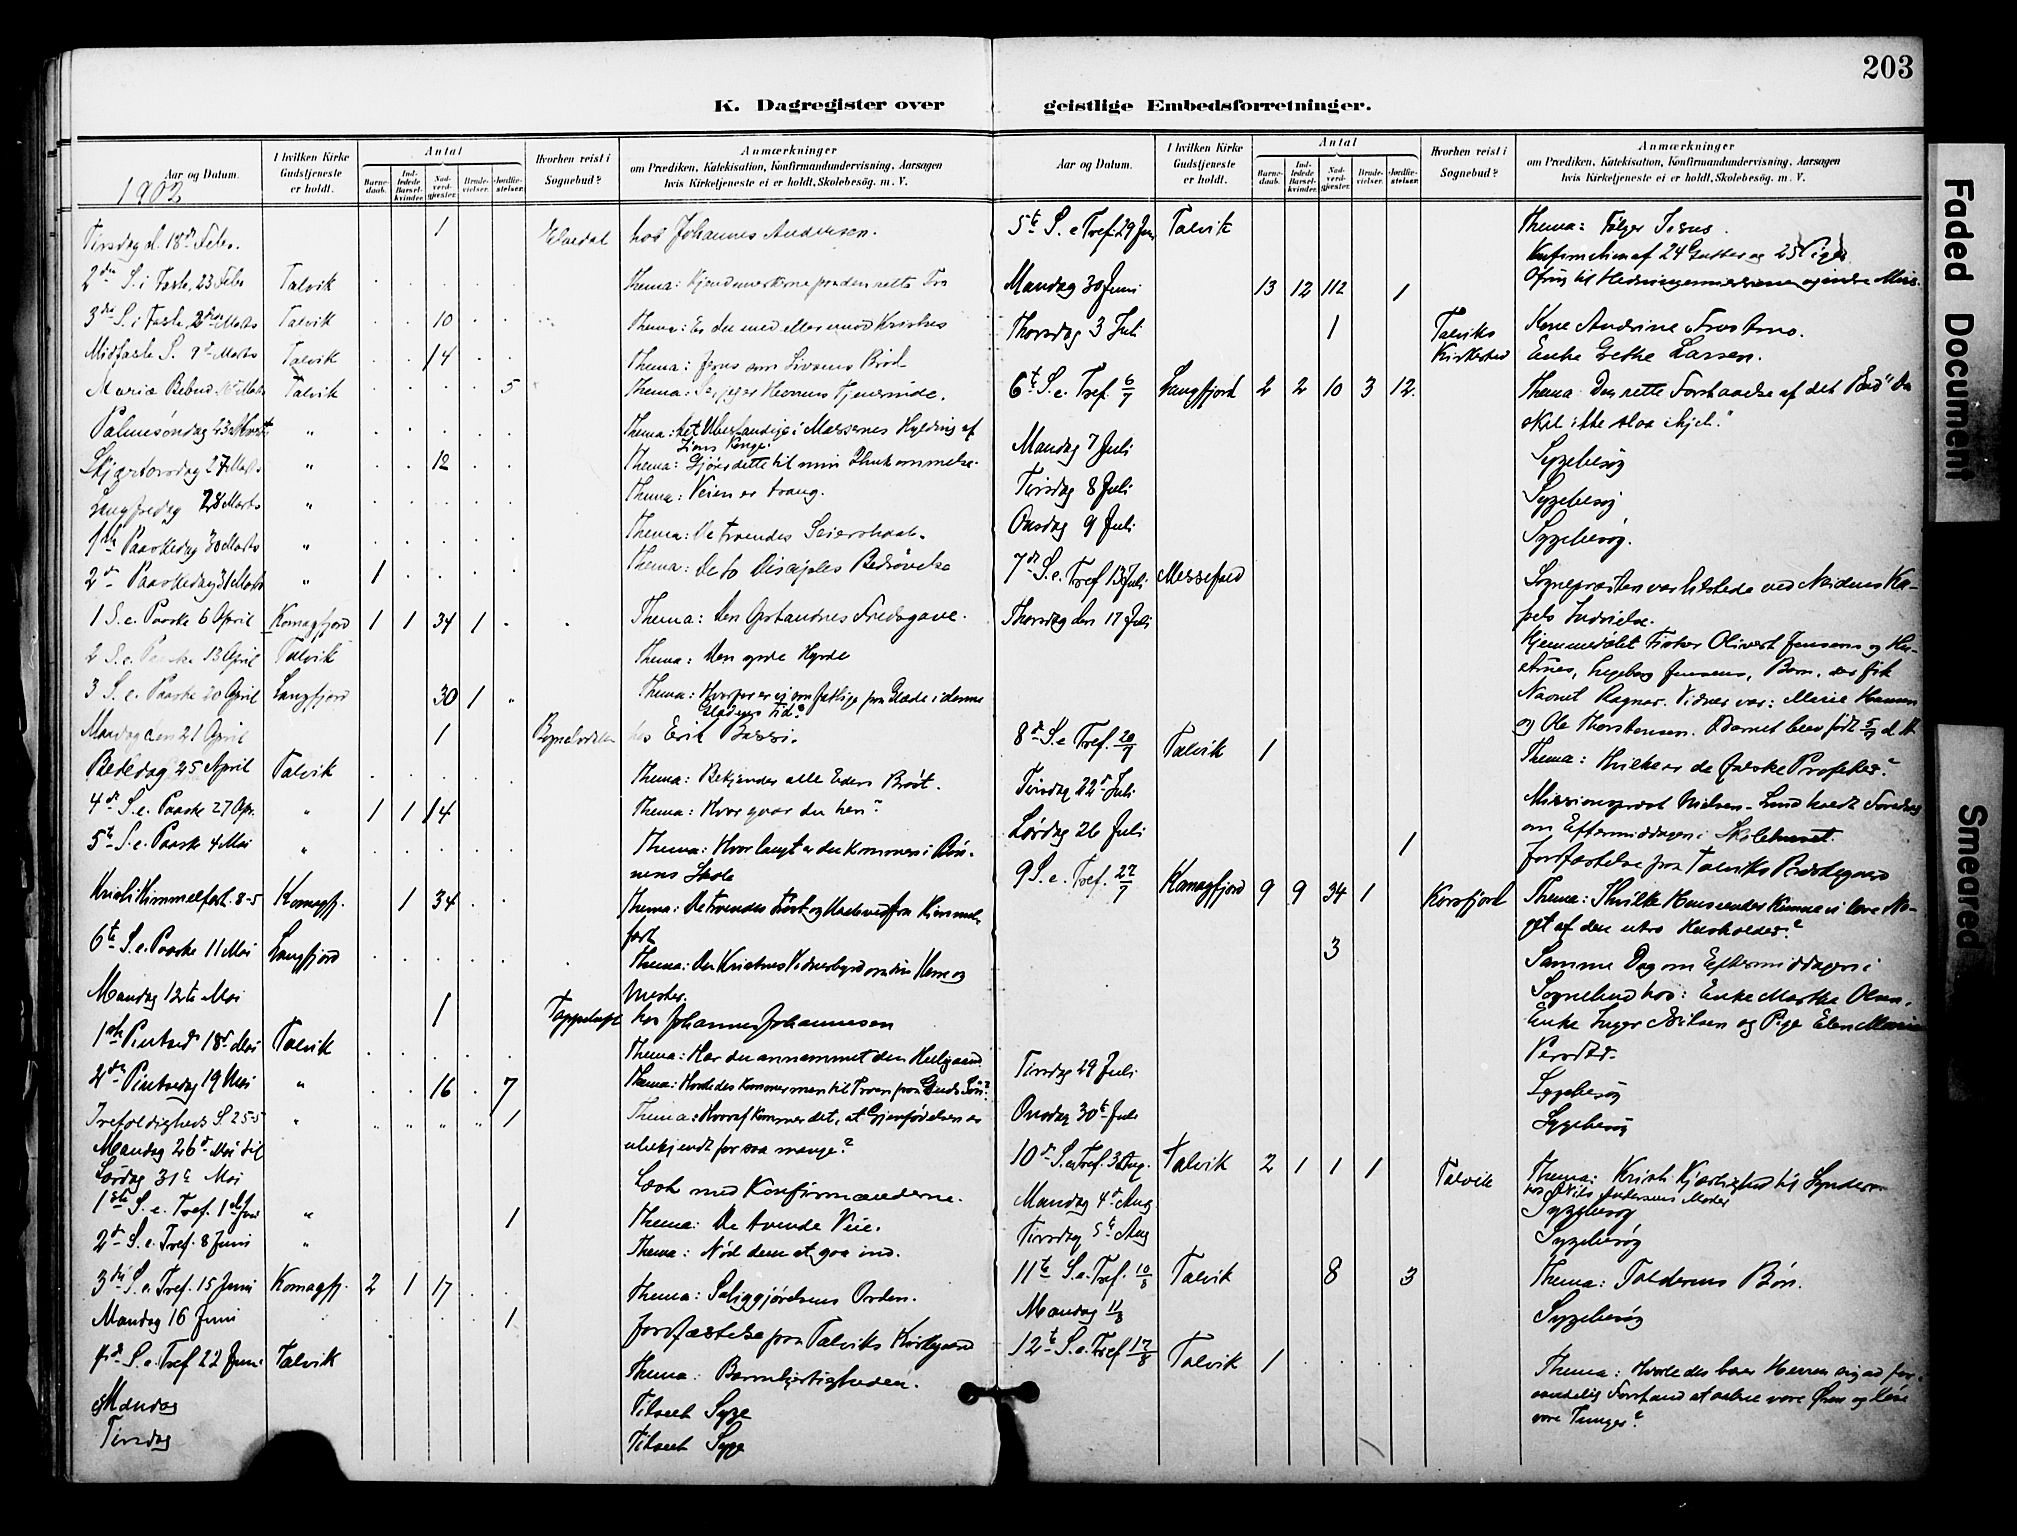 203
K. Dagregister over
Aar og Datum.
1902
I hvilken Kirke Gudstjeneste er holdt.
Antal
Barne-daab.
Ind-ledede Barsel-kvinder.
Nad-verd-gjester.
Brude-vielser.
Jordfæ-stelser.
Hvorhen reist i Sognebud?
Anmærkninger
om Prædiken, Katekisation, Konfirmandundervisning, Aarsagen
hvis Kirketjeneste ei er holdt, Skolebesög. m. V.
Tirsdag d. 18de Febr. 1 hos Johannes Andersen.
2den S. i Faste, 23 Febr Talvik Thema: Kjendemerkerne paa den rette Tro
3die S. i Faste, 2den Marts Talvik 10 Thema: Er du med eller mod Kristus
Midfaste S. 9de Marts Talvik 14 Thema: Jesus som Livsens Bröd
Mariæ Bebud. Marts Talvik 5 Thema: Se, jeg er Herrens Tjenerinde.
Palmesöndag 23 Marts " Thema: Det i Massernes Hylding af
Zions Konge.
Skjærtorsdag 27 Marts " 12 Thema: Gjører dette til min Ihukommelse.
Langfredag 28 Marts " Thema: Veien er trang.
1ste Paaskedag 30 Marts " Thema: De troendes Seiershaab.
2den Paaskedag 31 Marts " 1 Thema: De to Disciples Bedrøvelse
1 S. e. Paaske 6 April Komagfjord 1 1 34 1 Thema: Den Opstandnes Fredsgave.
2 S. e. Paaske 13 April Talvik Thema: Den gode Hyrde
3 S. e. Paaske 20 April Langfjord 30 1 Thema: Hvorfor er vi saa fattige paa Glæde i denne
Glædens Tid?
Mandag den 21 April 1 hos Erik
Bededag 25 April Talvik Thema: Bekjender alle Eders Bröst.
4de S. e. Paaske 27 Apr. " 1 1 14 Thema: Hvor gaar du hen?
5te S. e. Paaske 4 Mai " Thema: Hvor langt er du kommen i Bön-
nens Skole
Kristi Himmelfart 8-5 Komagfj. 1 34 Thema: De troendes Tröst og Glæde ved Kristi Himmel-
fart
6te S. e. Paaske 11 Mai Langfjord Thema: De Kristnes Vidnesbyrd om din Herre og
Mester.
Mandag 12te Mai 1 hos Johannes Johannesen
1ste Pintsed. 18de Mai Talvik Thema: Har du annammet den Helligaand
2den Pintsedag 19 Mai " 16 7 Thema: Hvorledes kommer man til Troen paa Guds Sön?
Trefoldigheds S. 25-5 " " " " " 1 Thema: Hvoraf kommer det, at Gjenfødelsen er
ubekjendt for saa mange?
Mandag 26de Mai til
Lørdag 31te Mai Læst med Konfirmanderne.
1ste S. e. Tref. 1ste Juni " 1 Thema: De tvende Veie.
2den S. e. Tref. 8 Juni " Thema: Nød dem at gaa ind.
3die S. e. Tref. 15 Juni Komagfj. 2 1 17 Thema: Saliggjørelsens Orden.
Mandag 16 Juni 1 Jordfæstelse paa Talviks Kirkegaard
4de S. e. Tref 22 Juni Talvik Thema: Barmhjertigheden.
Mandag Tilseet Syge
Tirsdag Tilseet Syge
geistlige Embedsforretninger.
Aar og Datum.
I hvilken Kirke Gudstjeneste er holdt.
Antal
Barne-daab.
Ind-ledede Barsel-kvinder.
Nad-verd-gjester.
Brude-vielser.
Jordfæ-stelser.
Hvorhen reist i Sognebud?
Anmærkninger
om Prædiken, Katekisation, Konfirmandundervisning, Aarsagen
hvis Kirketjeneste ei er holdt, Skolebesög. m. V.
5te S. e Tref. 29 Juni Talvik Thema: Følger Jesus.
Konfirmation af 24 Gutter og 25 Piger
Mandag 30 Juni 13 12 112 1 Ofring til Hedningemissionen og indre Miss.
Thorsdag 3 Juli 1 Talviks Kone Andrine
Kirkested Enke Grethe Larsen.
6te S. e. Tref. 6/7 Langfjord 2 2 10 3 12 Thema: Den rette Forstaaelse af det Bud "Du
skal ikke slaa ihjel."
Mandag 7 Juli Sygebesøg
Tirsdag 8 Juli Sygebesøg
Onsdag 9 Juli Sygebesøg.
7de S. e. Tref 13 Juli Sognepræsten var tilstede ved Neidens Ka-
pels Indvielse.
Thorsdag den 17 Juli Hjemmedøbt Fisker Olivert Jensens og Hu-
strues, Ingeborg Jensens, Barn, der fik
Navnet Ragnar. Vidner var: Marie
og Ole Thorstensen. Barnet blev født
8de S. e Tref. 20/7 Talvik 1 Thema: Hvilke er de falske Profeter?
Tirsdag 22de Juli Missionsprest Nielsen-Lund holdt Foredrag
om Eftermiddagen i Skolehuset.
Lørdag 26 Juli 1 Jordfæstelse paa Talviks
9 S. e. Tref. 27/7 Komagfjord 9 9 34 1 Korsfjord Thema: I hvilke Henseender kunne vi lære No-
get af den utro Husholder?
3 Samme Dag om Eftermiddagen i
Sognebud hos: Enke Marthe Olsen,
Enke Inger Nilsen og Pige Elen Marie
Tirsdag 29 Juli Sygebesøg
Onsdag 30te Juli Sygebesøg
10de S. e. Tref. 3 Aug. Talvik 2 1 1 1 Talvik Thema: Kristi Kjærlighed til Syndere
hos Nils Andersens Moder
Mandag 4de Aug Sygebesøg
Tirsdag 5te Aug Sygebesøg
11te S. e. Tref. 10/8 Talvik 8 3 Thema: Tolderens Bön.
Mandag 11/8 Sygebesøg
12te S. e. Tref 17/8 Talvik 1 Thema: Hvorledes baer Herren sig ad for
aandelig Forstand at aabne vore Øren og løse
vore Tunger?
Faded Document
Smeared